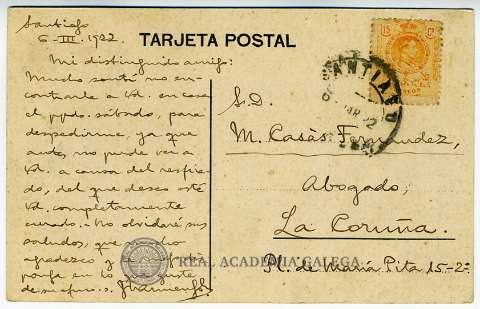 Santiago
6-III-1922
TARJETA POSTAL
15 Cs
SANTIAGO
Mi distinguido amigo:
Mucho sentí no en-
contrarle a Vd. en casa
el ppdo. sábado, para
despedirme, ya que
antes, no pude ver a
Vd. a causa del resfria-
do, del que deseo esté
Vd. completamente
curado. No olvidaré sus
saludos, que
agradezco y
en lo
de su afmo. s.
S.D.
M. Casás Fernández,
Abogado,
La Coruña.
Pl. de María Pita 15-2º
REAL ACADEMIA GALEGA